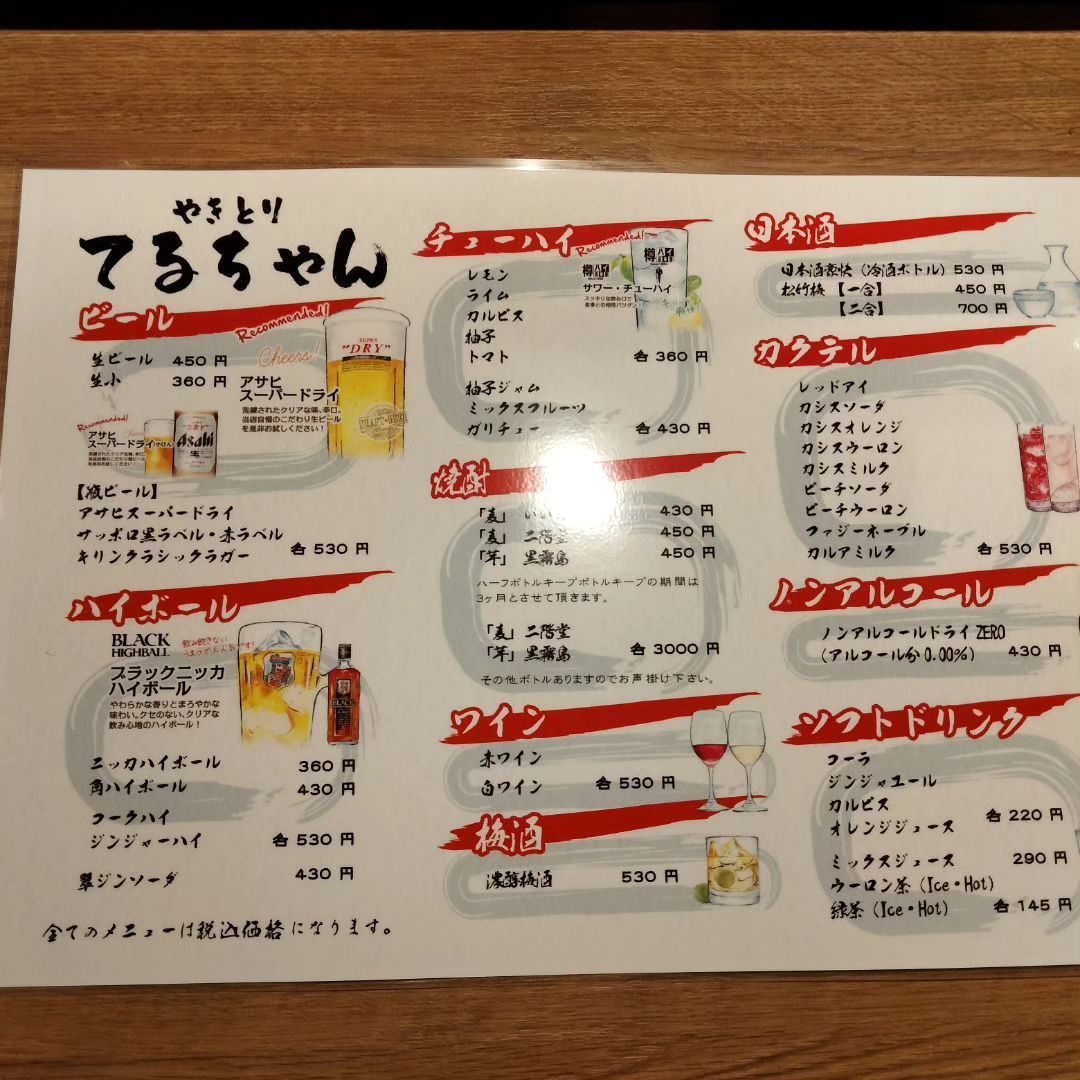 やきとり
てるちゃん
ビール
Recommended!
Cheers!
SUPER
"DRY"
生ビール 450 円
生小 360 円
アサヒ
スーパードライ
洗練されたクリアな味、辛口。
当店自慢のこだわり生ビール
を是非お試しください!
DRAFT-BEER
Recommended!
アサヒ
スーパードライ
"DRY"
Asahi
生
【瓶ビール】
アサヒスーパードライ
サッポロ黒ラベル・赤ラベル
キリンクラシックラガー 各 530 円
ハイボール
BLACK
HIGHBALL
ブラックニッカ
ハイボール
やわらかな香りとまろやかな
味わい。クセのない、クリアな
飲み心地のハイボール!
BLACK
ニッカハイボール 360 円
角ハイボール 430 円
コークハイ
ジンジャーハイ 各 530 円
翠ジンソーダ 430 円
全てのメニューは税込価格になります。
チューハイ
Recommended!
樽ハイ
樽ハイ
サワー・チューハイ
レモン
ライム
カルピス
柚子
トマト 各 360 円
柚子ジャム
ミックスフルーツ
ガリチュー 各 430 円
焼酎
「麦」 430 円
「麦」 二階堂 450 円
「芋」 黒霧島 450 円
ハーフボトルキープボトルキープの期間は
3ヶ月とさせて頂きます。
「麦」 二階堂
「芋」 黒霧島 各 3000 円
その他ボトルありますのでお声掛け下さい。
ワイン
赤ワイン
白ワイン 各 530 円
梅酒
濃醇梅酒 530 円
日本酒
日本酒豪快(冷酒ボトル) 530 円
松竹梅 【一合】 450 円
【二合】 700 円
カクテル
レッドアイ
カシスソーダ
カシスオレンジ
カシスウーロン
カシスミルク
ピーチソーダ
ピーチウーロン
ファジーネーブル
カルアミルク 各 530 円
ノンアルコール
ノンアルコールドライZERO
(アルコール分0.00%) 430 円
ソフトドリンク
コーラ
ジンジャエール
カルピス
オレンジジュース 各 220 円
ミックスジュース 290 円
ウーロン茶(Ice・Hot)
緑茶(Ice・Hot) 各 145 円